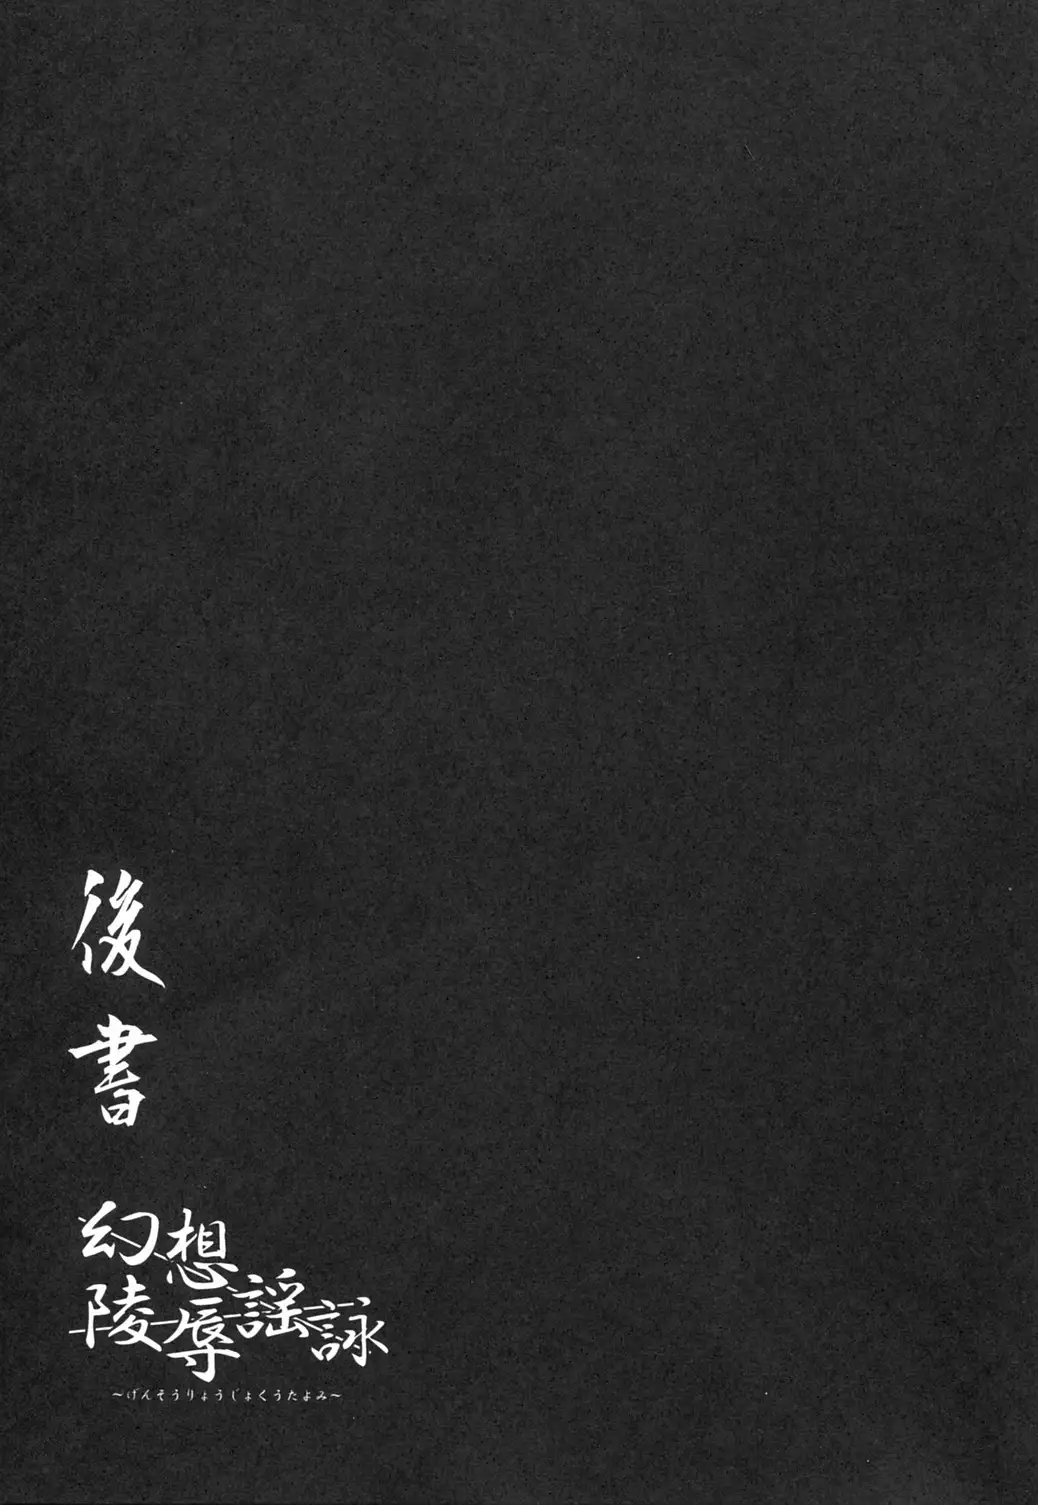 後書
幻想
陵辱謡詠
～げんそうりょうじょくうたよみ～